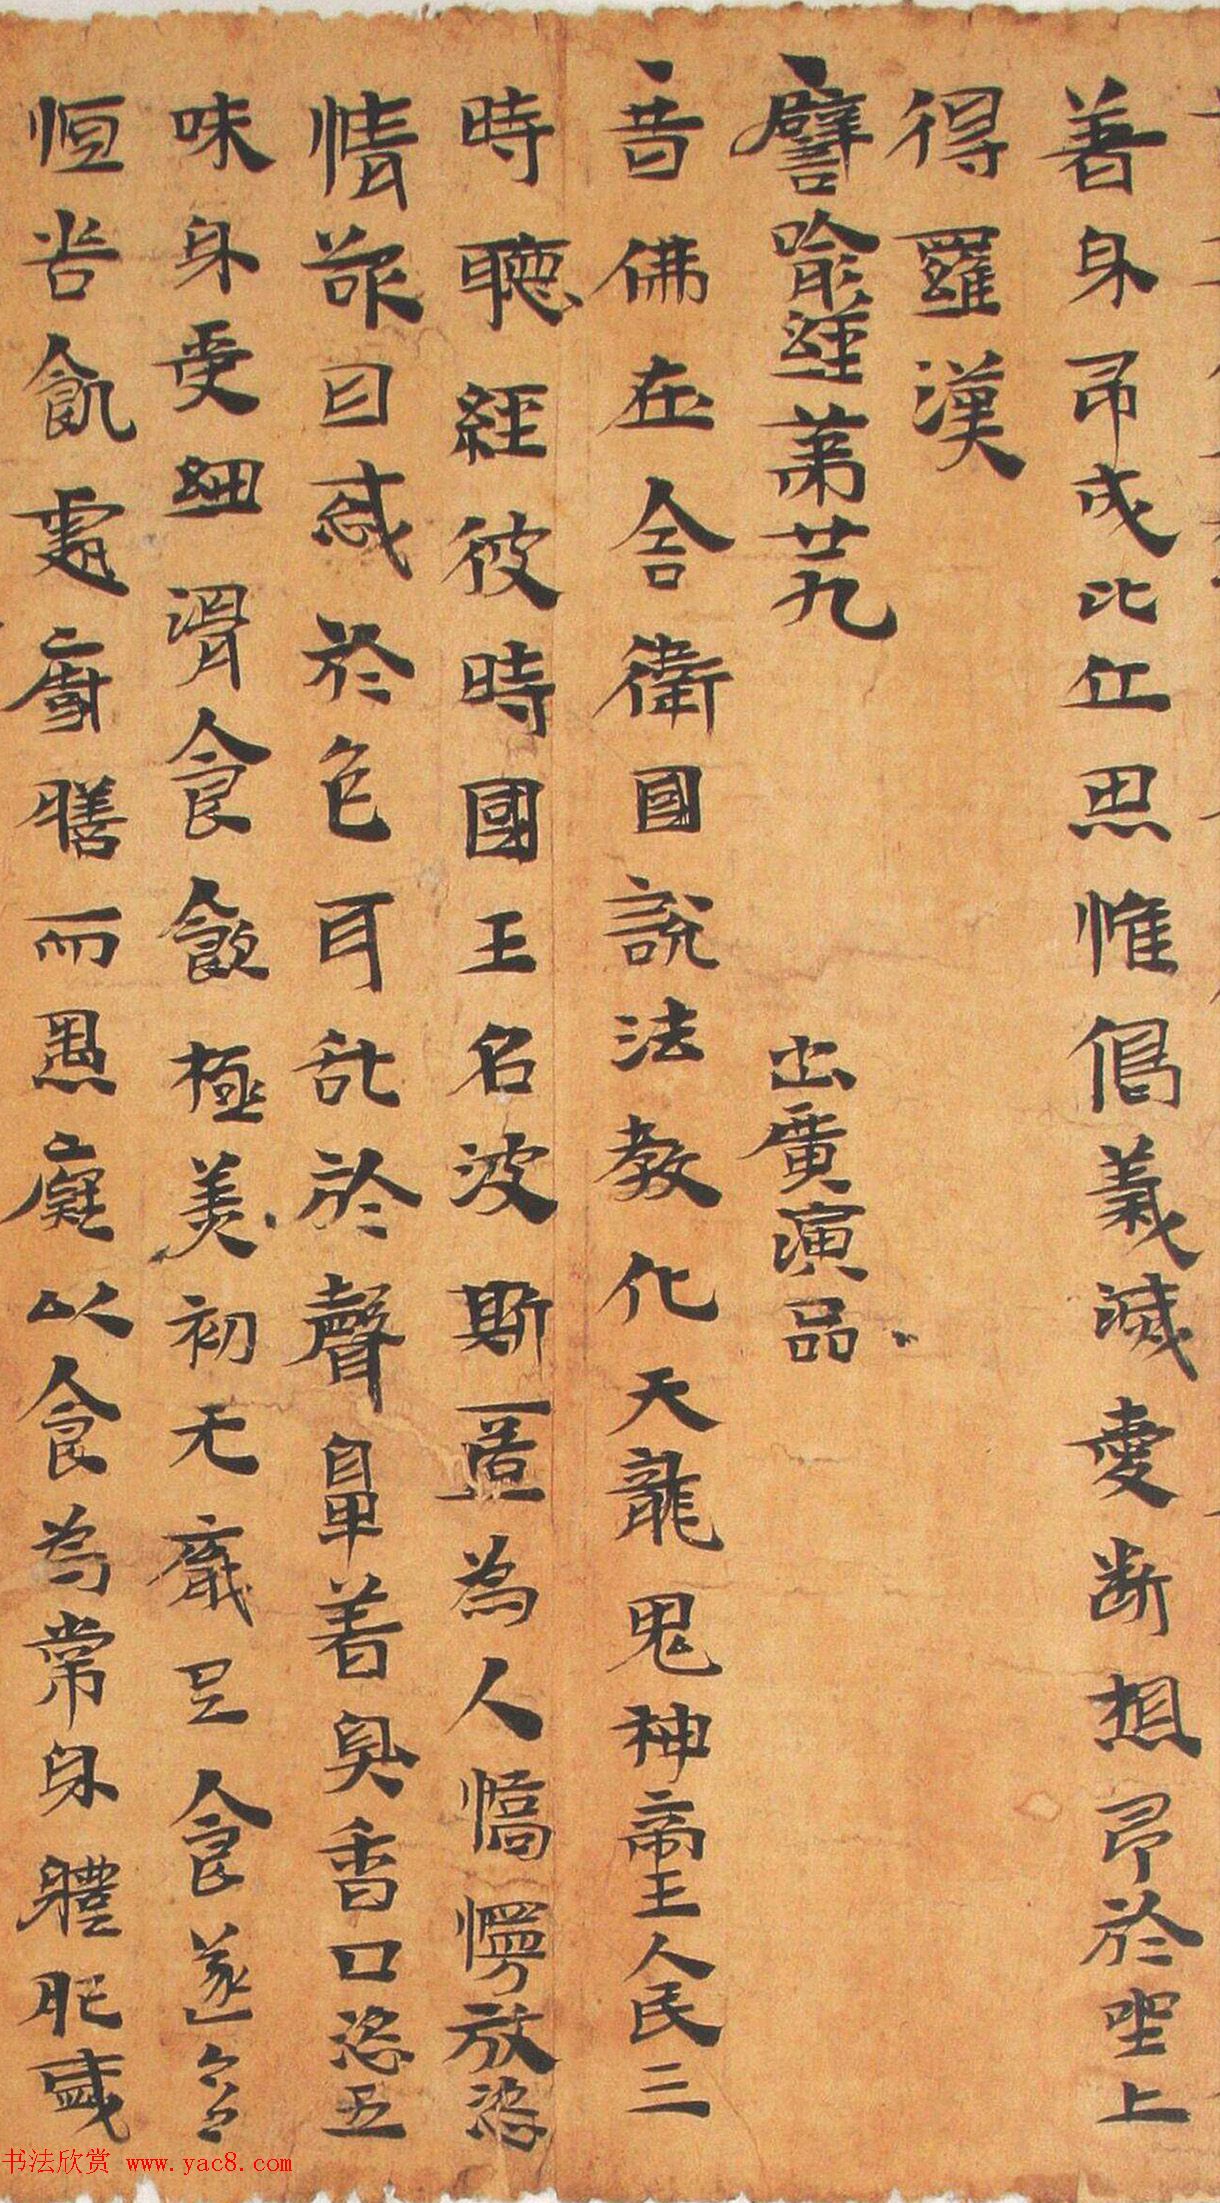 善身即成比丘思惟偈義滅愛斷想即於坐上
得羅漢
譬喻經第廿九 出廣演品
昔佛在舍衛國說法教化天龍鬼神帝王人民三
時聽經彼時國王名波斯匿為人憍慢放恣
情欲目惑於色耳乱於聲鼻着臭香口恣五
味身受細滑食飲極美初无厭足食遂
恒苦飢處廚膳而愚廢以食為常身體肥盛
书法欣赏 www.yac8.com